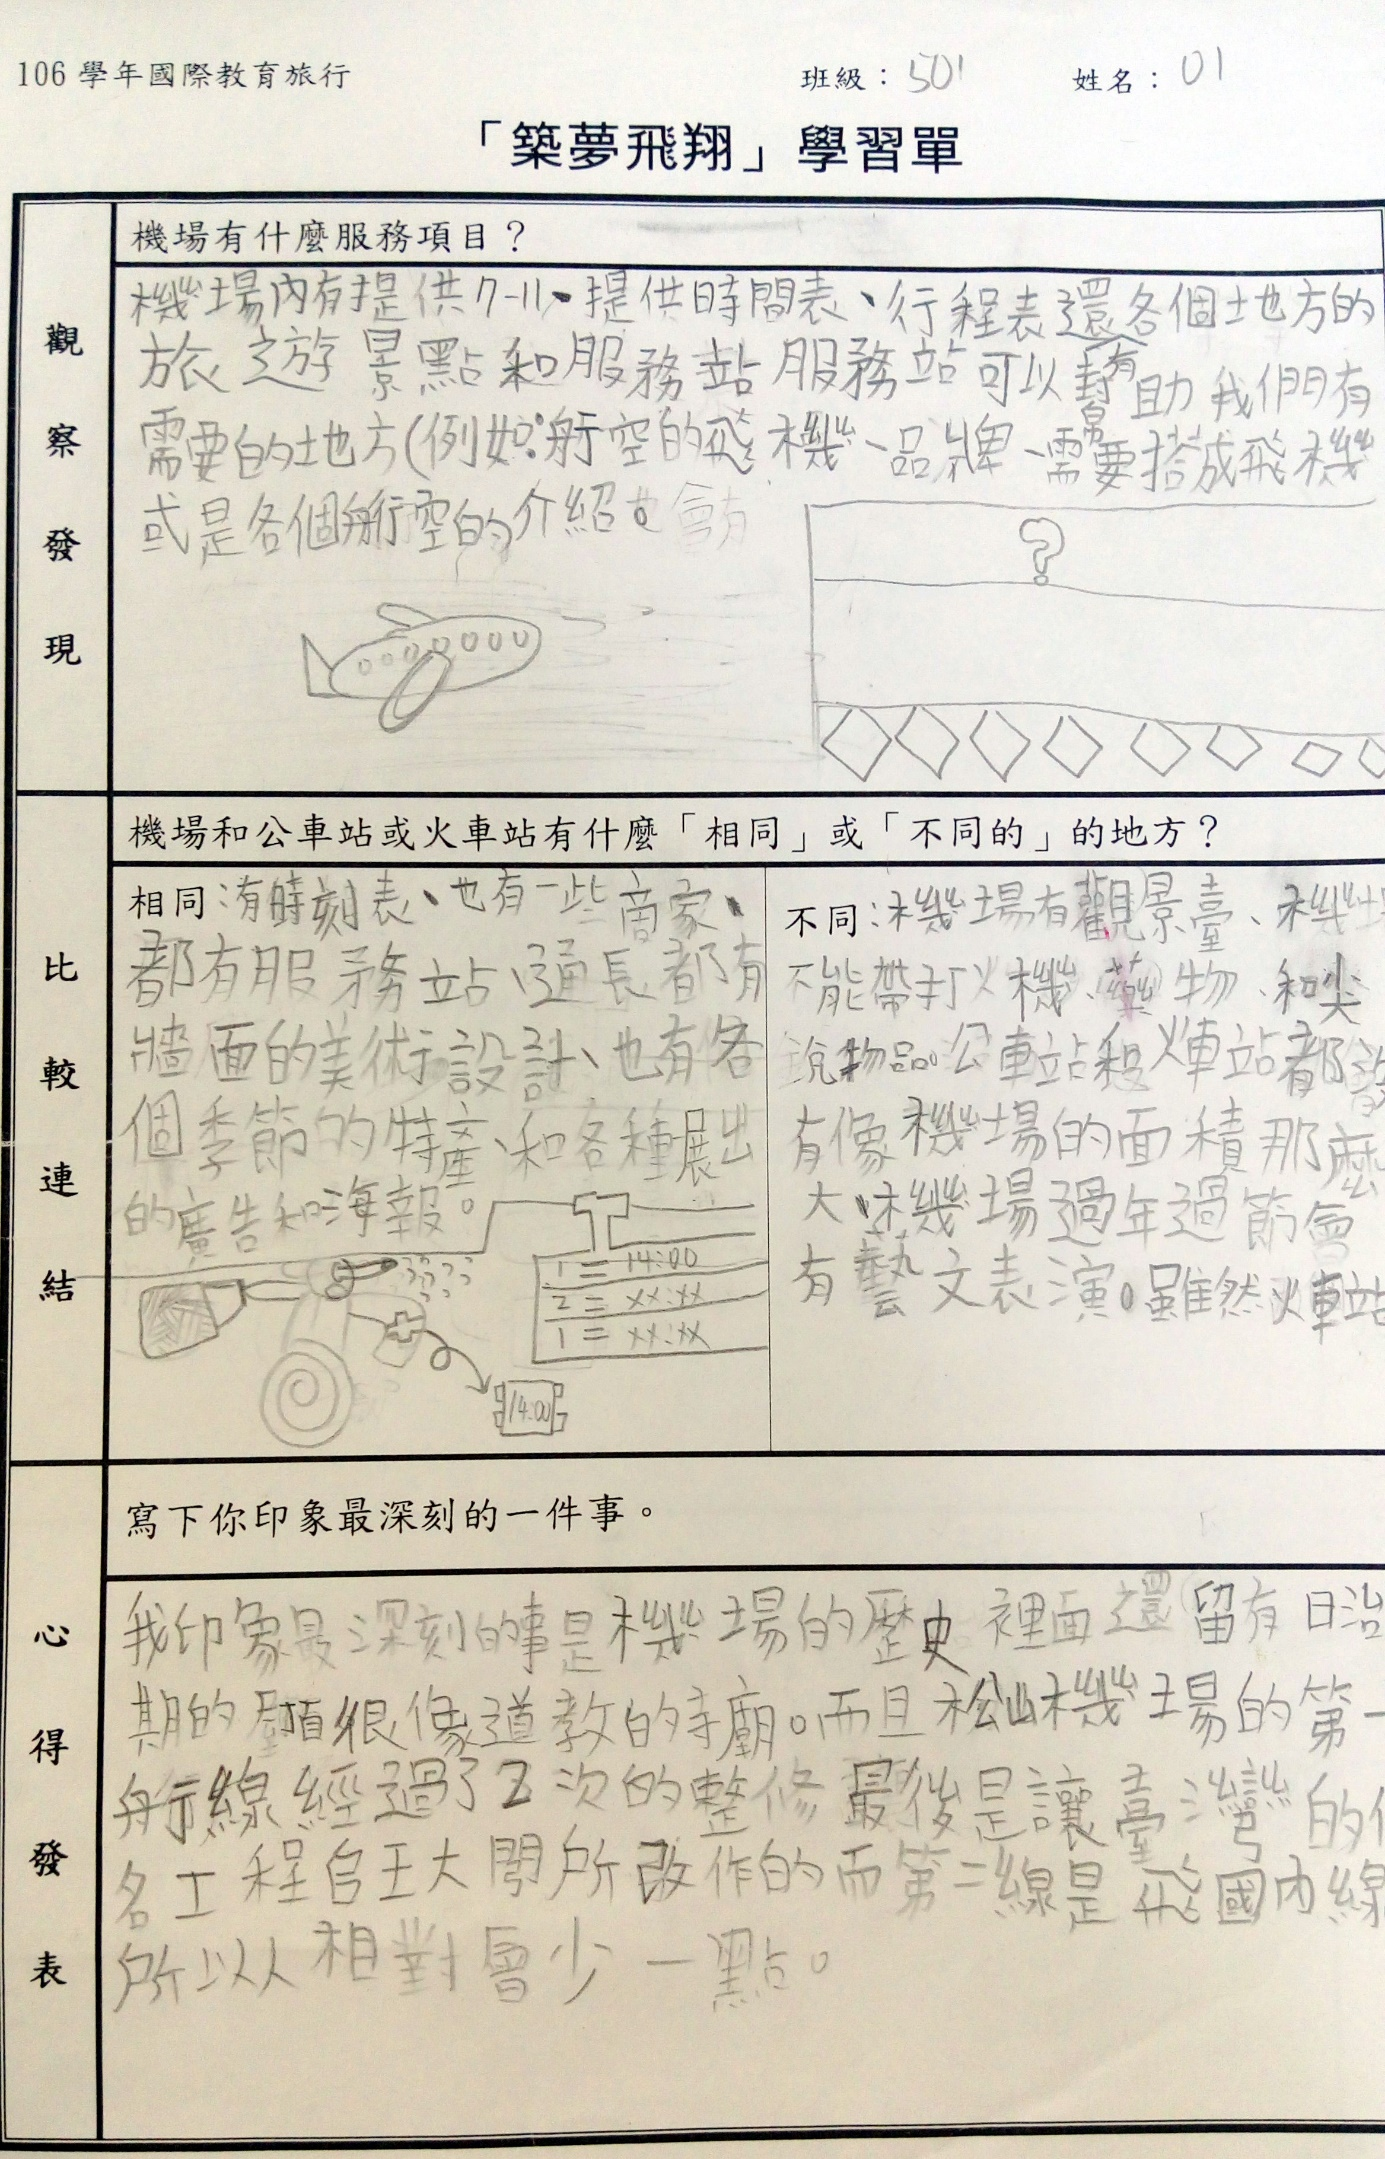 106 學年國際教育旅行
班級：501
姓名：01
「築夢飛翔」學習單
觀察發現
機場有什麼服務項目？
機場內有提供7-11、提供時間表、行程表還有各個地方的
旅遊景點和服務站服務站可以幫助我們有
需要的地方(例如:航空的飛機、品牌、需要搭成飛機
或是各個航空的介紹。
?
比較連結
機場和公車站或火車站有什麼「相同」或「不同的」的地方？
相同:有時刻表、也有一些商家、
都有服務站、通長都有
牆面的美術設計、也有各
個季節的特產、和各種展出
的廣告和海報。
1 = 14:00
2 = xx:xx
1 = xx:xx
14:00
不同:機場有觀景臺、機場
不能帶打火機、藥物、和尖
銳物品。公車站和火車站都沒
有像機場的面積那麼
大、機場過年過節會
有藝文表演。雖然火車站
心得發表
寫下你印象最深刻的一件事。
我印象最深刻的事是機場的歷史裡面還留有日治
期的 很像道教的寺廟。而且松山機場的第一
航線經過了2次的整修最後是讓臺灣的
名工程官王大閎所改作的而第二線是飛國內線
所以人相對會少一點。